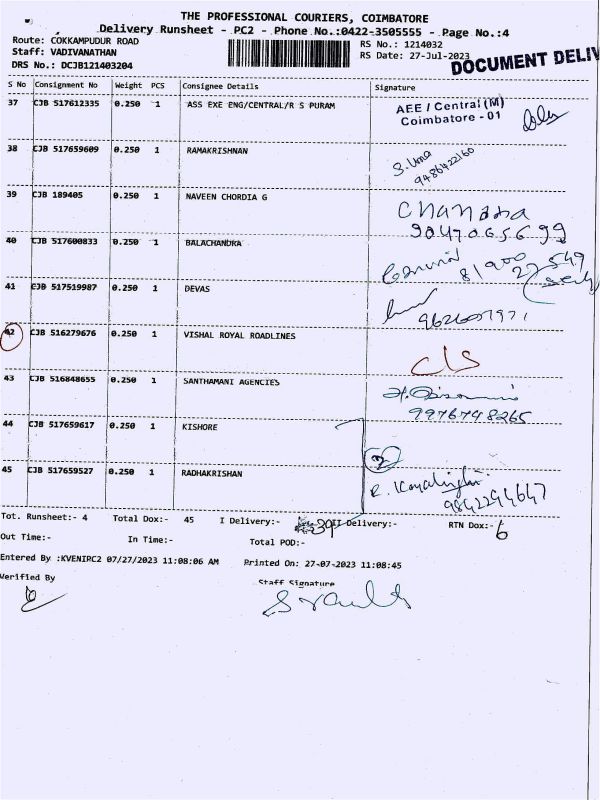 THE PROFESSIONAL COURIERS, COIMBATORE
Delivery Runsheet - PC2 - Phone No.:0422-3505555 - Page No.:4
Route: COKKAMPUDUR ROAD
Staff: VADIVANATHAN
DRS No.: DCJB121403204
RS No.: 1214032
RS Date: 27-Jul-2023
DOCUMENT DELIV
S No Consignment No Weight PCS Consignee Details Signature
37 CJB 517612335 0.250 1 ASS EXE ENG/CENTRAL/R S PURAM
AEE / Central (M)
Coimbatore - 01
38 CJB 517659609 0.250 1 RAMAKRISHNAN
S. Uma
9486422160
39 CJB 189405 0.250 1 NAVEEN CHORDIA G
Chandra
9047065699
40 CJB 517600833 0.250 1 BALACHANDRA
81900
27549
41 CJB 517519987 0.250 1 DEVAS
42 CJB 516279676 0.250 1 VISHAL ROYAL ROADLINES
C/S
43 CJB 516848655 0.250 1 SANTHAMANI AGENCIES
9976748265
44 CJB 517659617 0.250 1 KISHORE
2
45 CJB 517659527 0.250 1 RADHAKRISHAN
9842294647
Tot. Runsheet:- 4 Total Dox:- 45 I Delivery:- 39 II Delivery:- RTN Dox:- 6
Out Time:- In Time:- Total POD:-
Entered By :KVENIPC2 07/27/2023 11:08:06 AM Printed On: 27-07-2023 11:08:45
Verified By Staff Signature